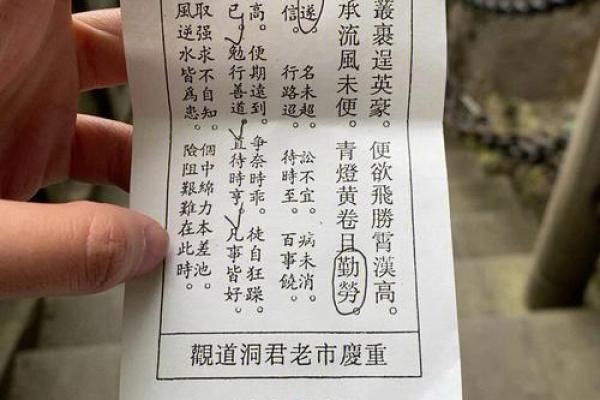 叢裹逞英豪。便欲飛勝霄漢高。
承流風未便。青燈黄卷且勤勞。
遂。名未超。訟不宜。病未消。
信。行路迢。待時至。百事饒。
高。便期遠到。爭奈時乖。徒自狂躁。
已。勉行善道。直待時亨。凡事皆好。
取强求不自知。個中綿力本差池。
風逆水皆爲患。險阻艱難在此時。
重慶市老君洞道觀